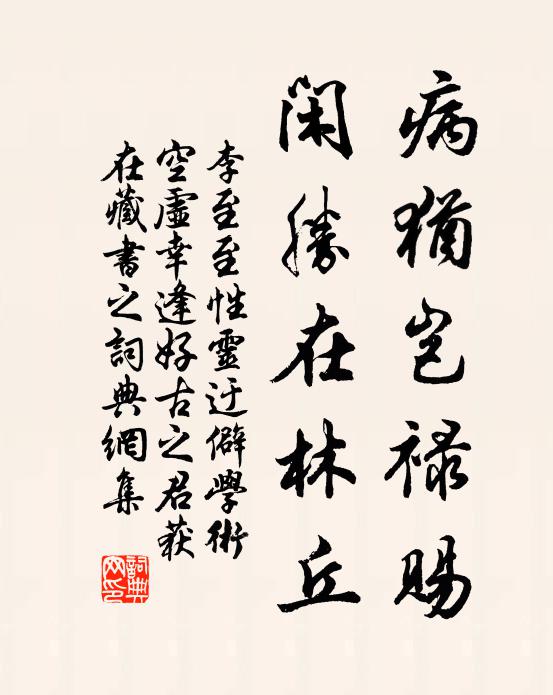 病猶岂禄賜
閑勝在林丘
李至至性靈迂僻學術
空虛幸逢好古之君获
在藏書之詞典網集
詞典網印